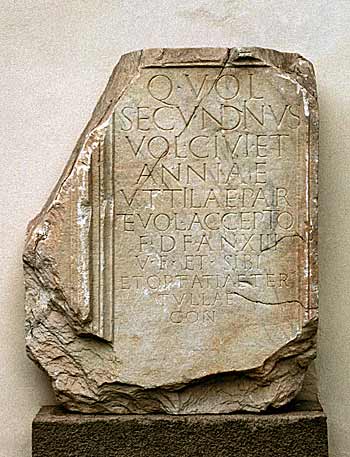 Q·VOL
SECVNDNVS
VOLCIVI ET
ANNIAE
VTTILAE PAR
ET VOL ACCEPTO
F D F AN XIII
V·F·ET·SIBI
ET OPTATIAE TER
TVLLAE
CON